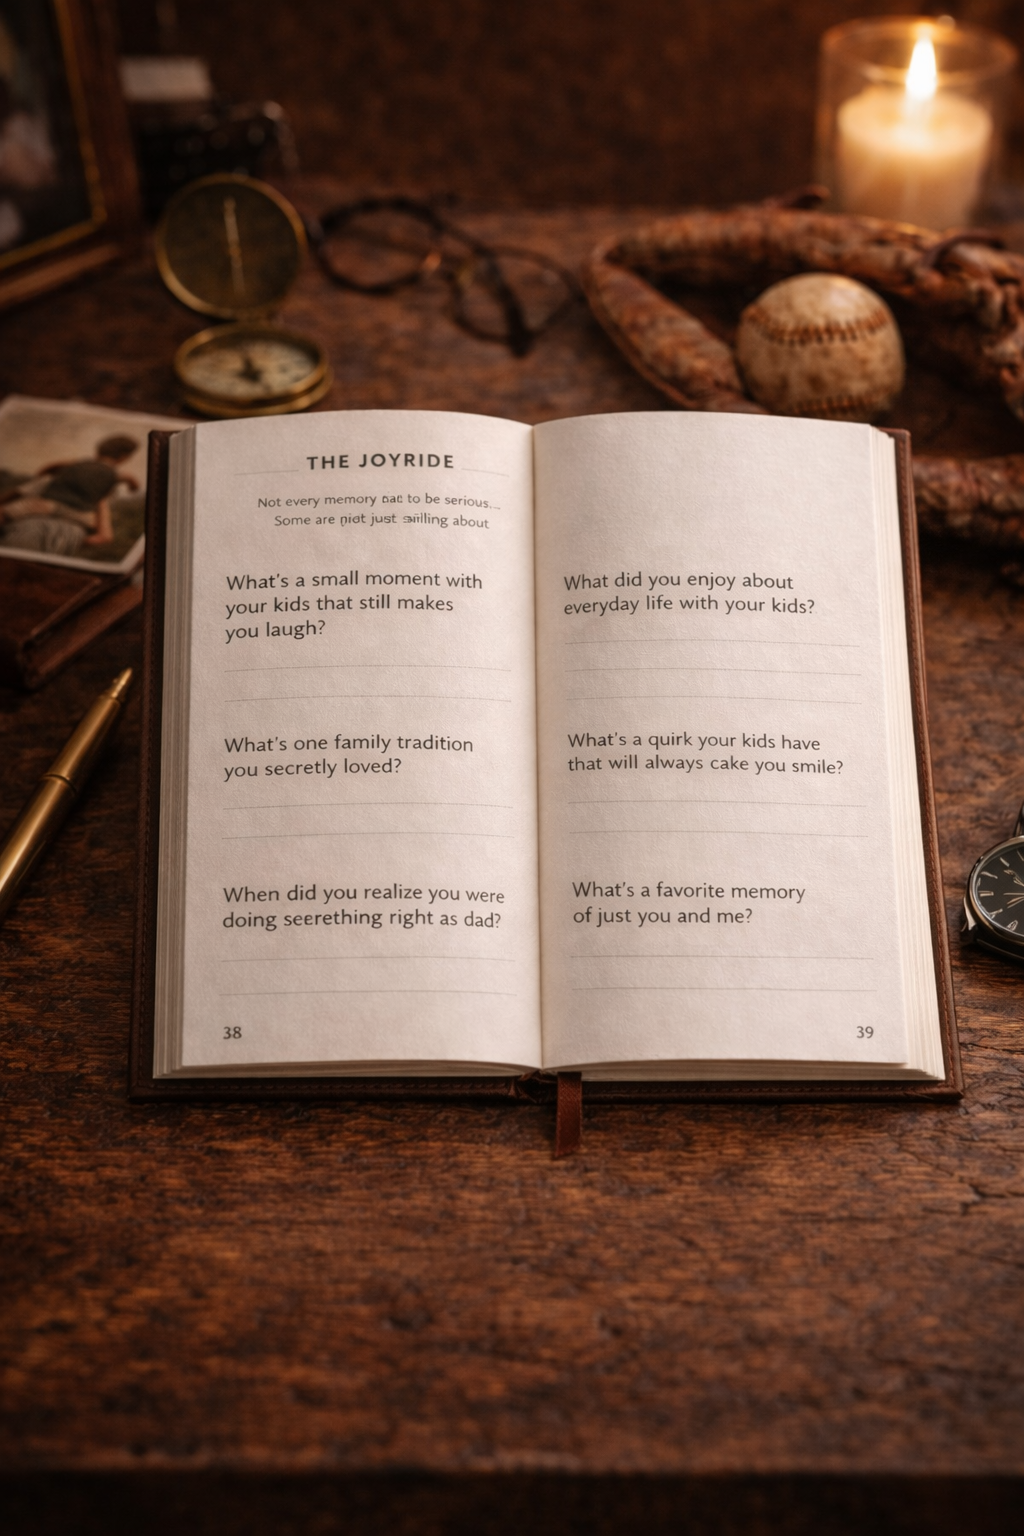 THE JOYRIDE
Not every memory to be serious...
Some are just about
What's a small moment with
your kids that still makes
you laugh?
What's one family tradition
you secretly loved?
When did you realize you were
doing seerething right as dad?
38
What did you enjoy about
everyday life with your kids?
What's a quirk your kids have
that will always cake you smile?
What's a favorite memory
of just you and me?
39